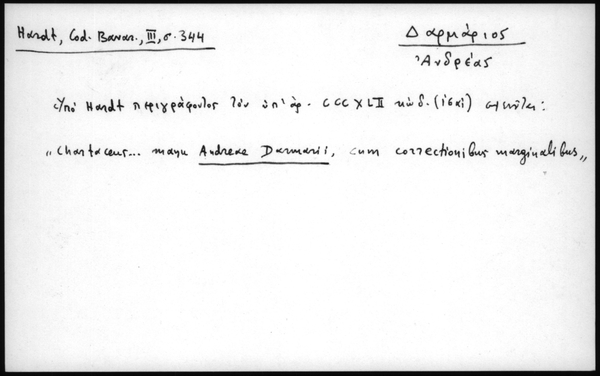 Hardt, Cod. Bavar., III, σ. 344
Δαρμάριος
Ἀνδρέας
Ὑπὸ Hardt περιγράφοντος τὸν ὑπ' ἀρ. CCCXLII κώδ.
„Chartaceus... manu Andreae Darmarii, cum correctionibus marginalibus„